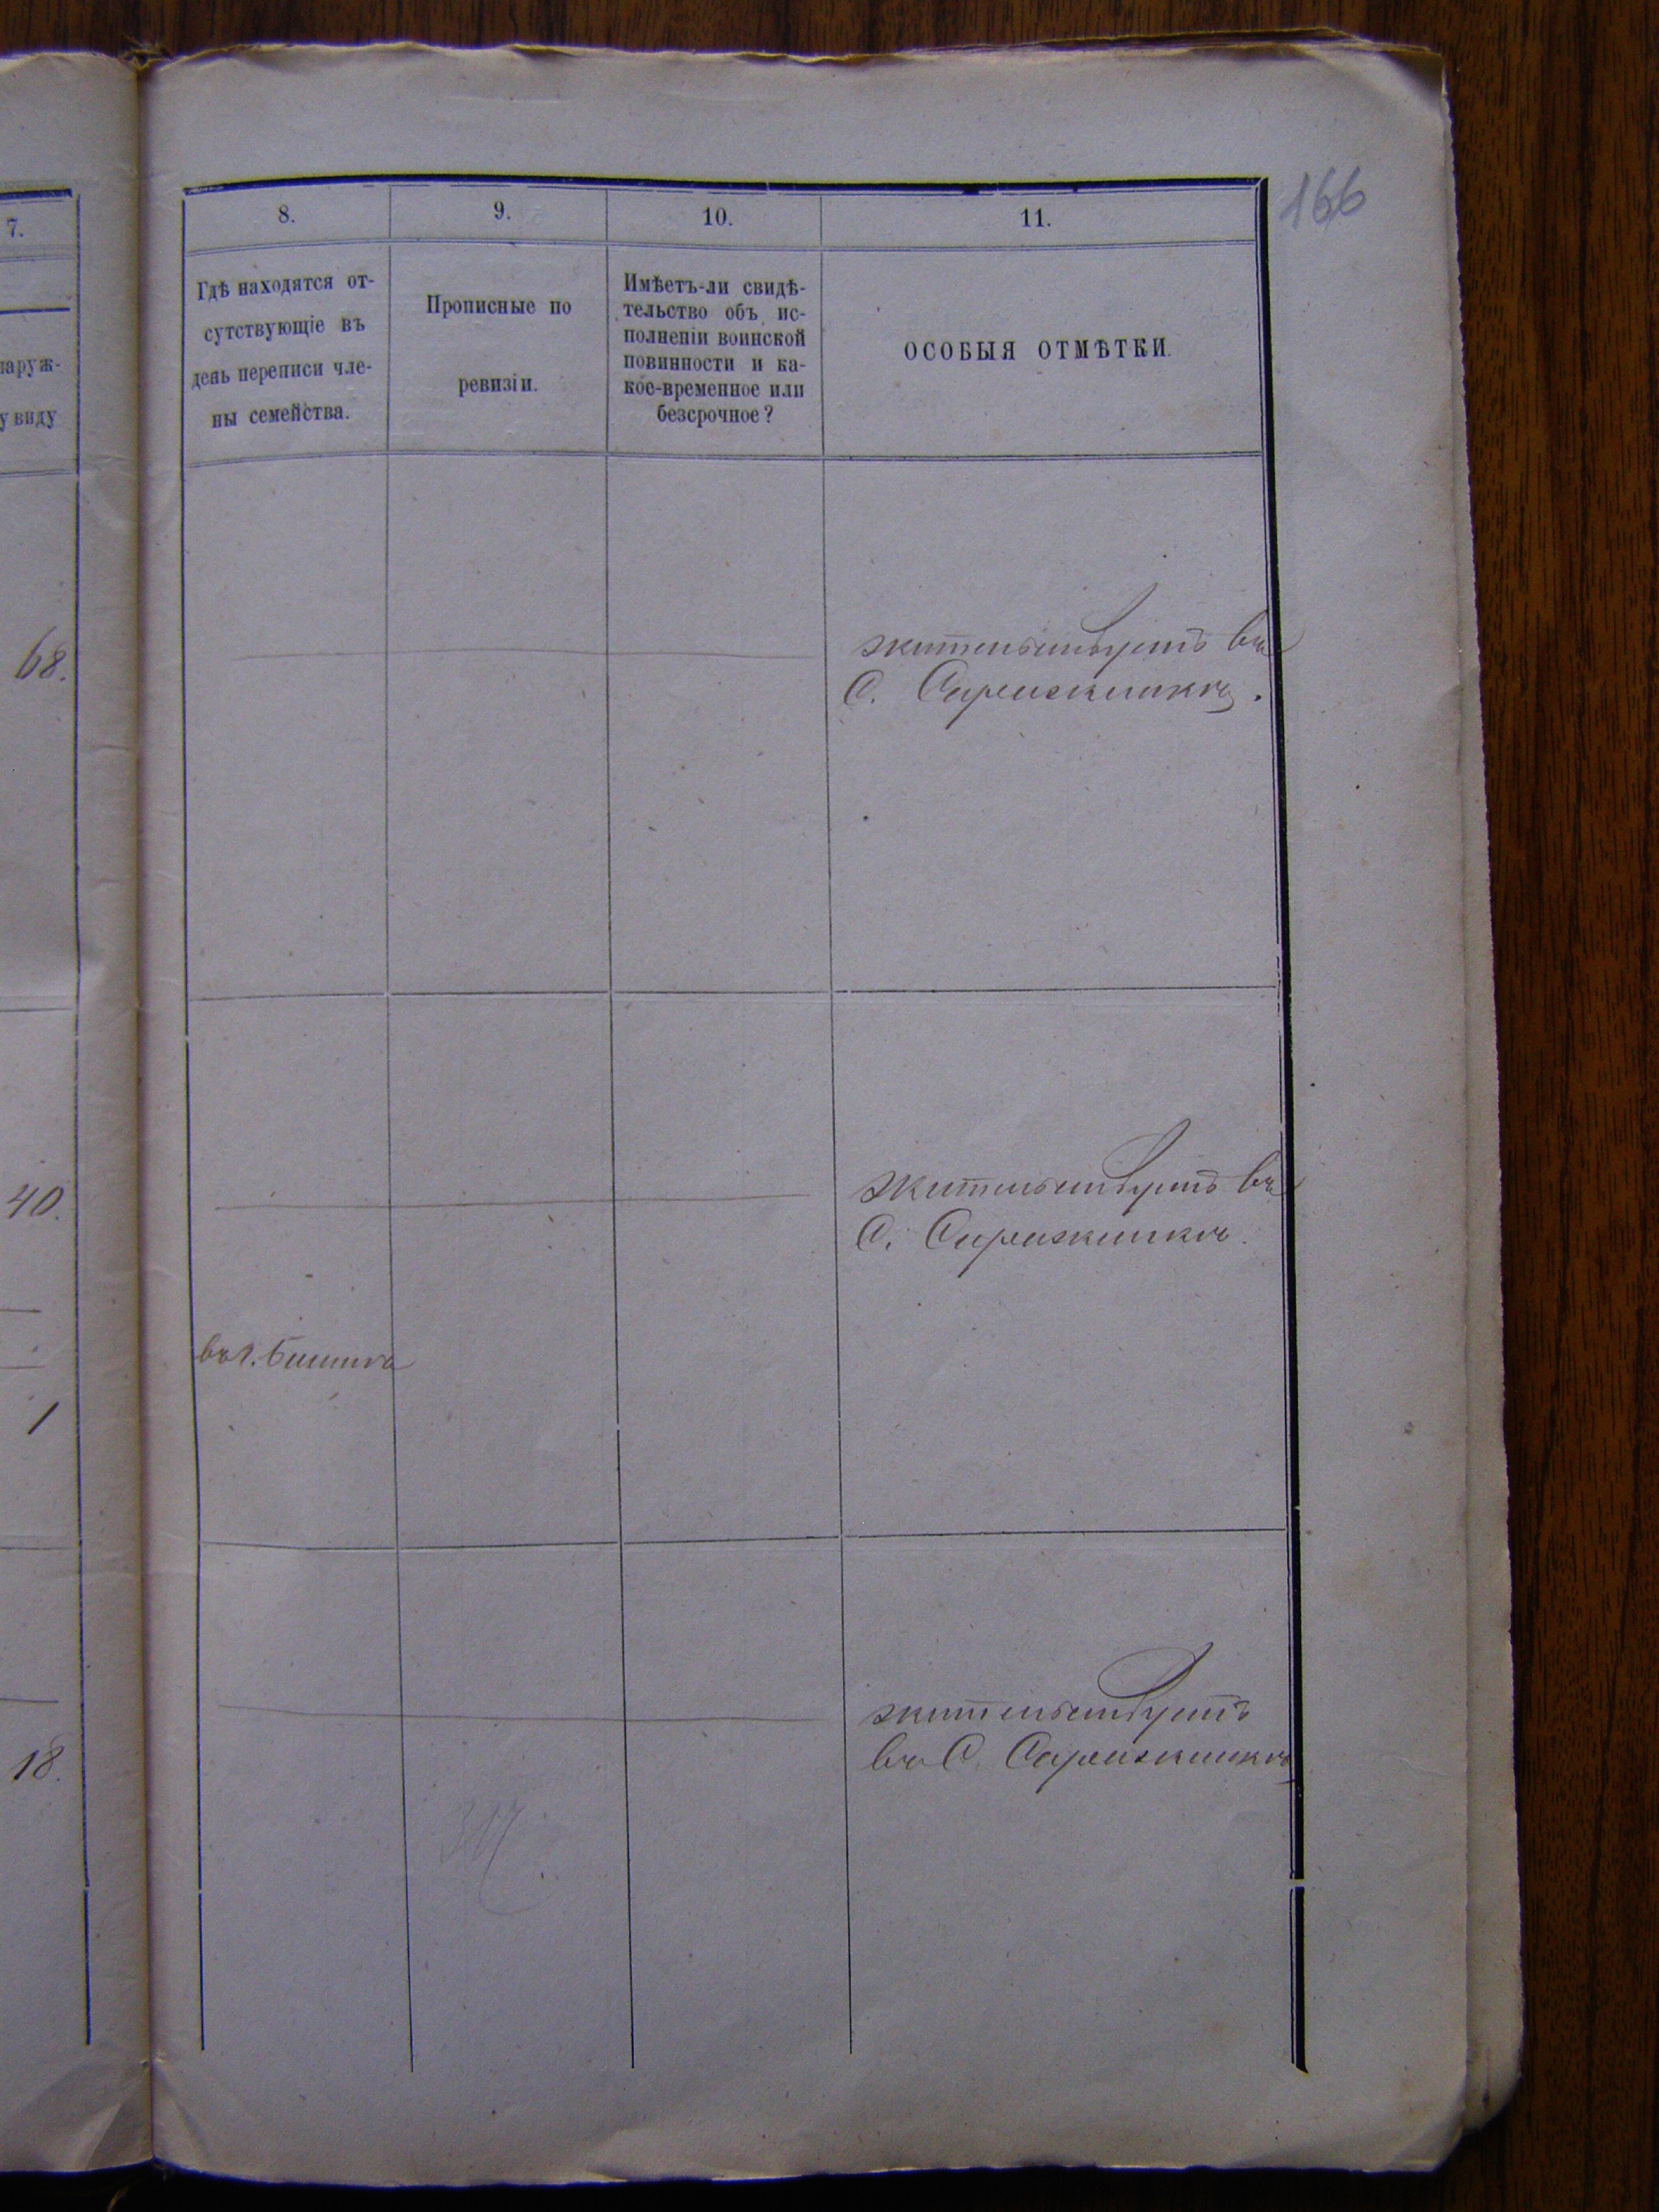 166
7.
8.
9.
10.
11.
наруж-
у виду
Гдѣ находятся от-
сутствующіе въ
день переписи чле-
ны семейства.
Прописные по
ревизіи.
Имѣетъ-ли свидѣ-
тельство объ ис-
полненіи воинской
повинности и ка-
кое-временное или
безсрочное?
ОСОБЫЯ ОТМѢТКИ.
68.
жительствуетъ въ
С.
40.
жительствуетъ въ
С.
въ г.
1
18.
жительствуетъ
въ С.